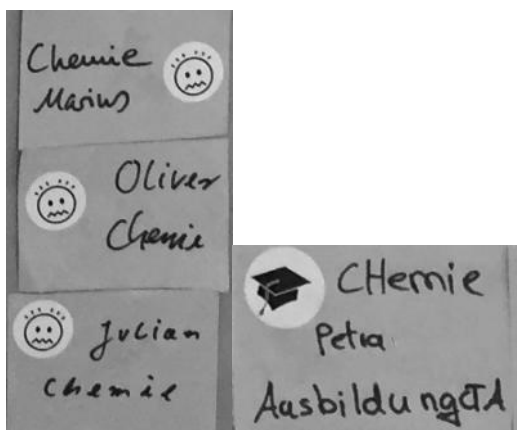 Chemie
Marius
Oliver
Chemie
Julian
Chemie
CHemie
Petra
AusbildungCTA